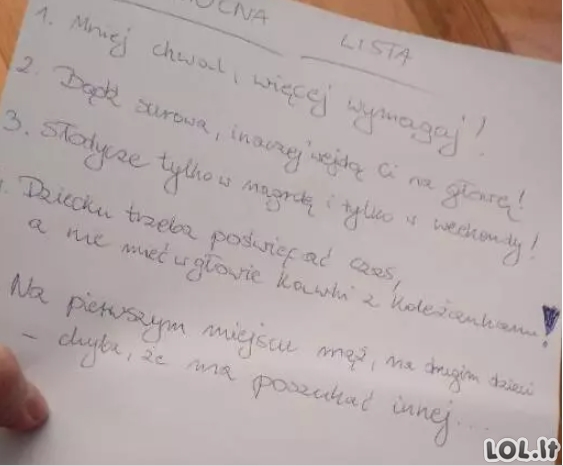 LISTA
1. Mniej chwal, więcej wymagaj!
2. Bądź surowa, inaczej wejdą Ci na głowę!
3. Słodycze tylko w nagrodę i tylko w weekendy!
Dziecku trzeba poświęcać czas,
a nie mieć w głowie kawki z koleżankami!
Na pierwszym miejscu mąż, na drugim dzieci
- chyba, że ma poszukać innej....
LOL.lt